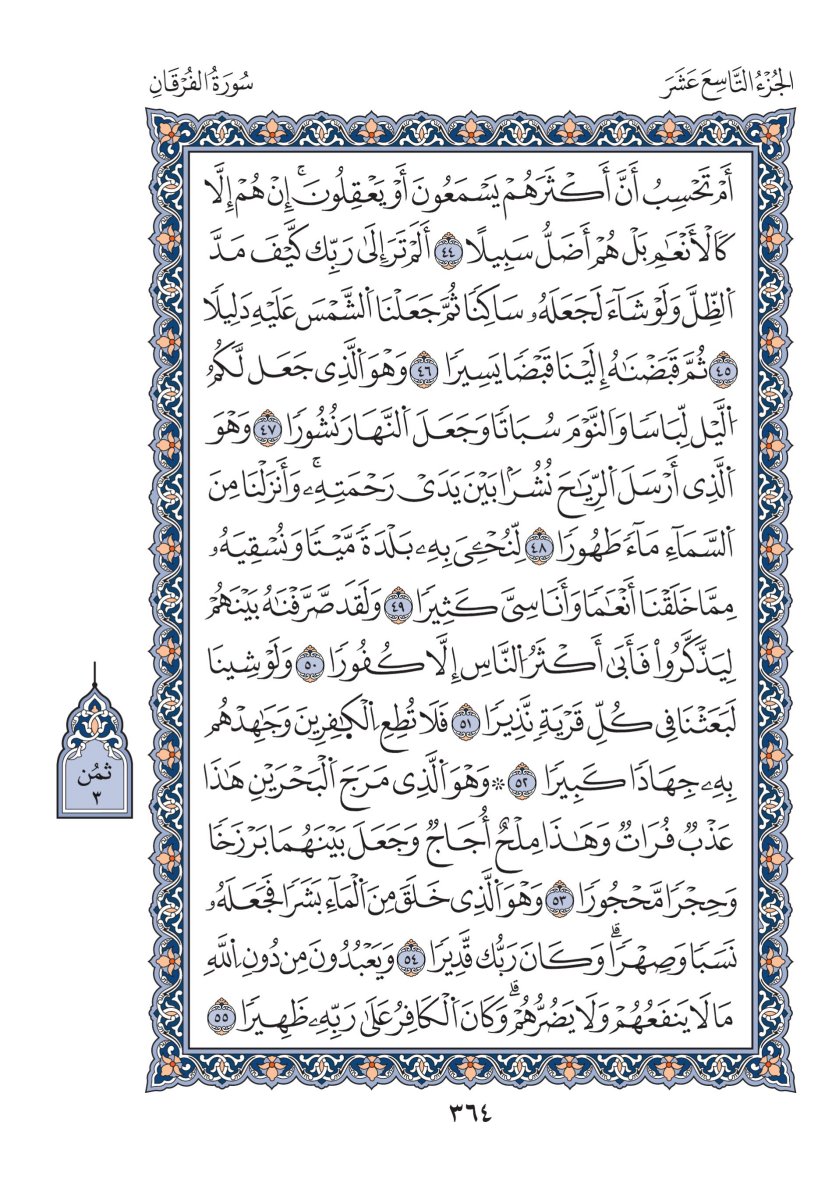 الجُزْءُ التَّاسِعَ عَشَرَ
سُورَةُ الفُرْقَانِ
أَمْ تَحْسِبُ أَنَّ أَكْثَرَهُمْ يَسْمَعُونَ أَوْ يَعْقِلُونَۚ إِنْ هُمْ إِلَّا
كَالْأَنْعَٰمِ بَلْ هُمْ أَضَلُّ سَبِيلًا ٤٤ أَلَمْ تَرَ إَِلَىٰ رَبِّك كَّيْفَ مَدَّ
ٱلظِّلَّ وَلَوْ شَآءَ لَجَعَلَهُۥ سَاكِنًا ثُمَّ جَعَلْنَا ٱلشَّمْسَ عَلَيْهِ دَلِيلًا
٤٥ ثُمَّ قَبَضْنَٰهُ إِلَيْنَا قَبْضًا يَسِيرًا ٤٦ وَهْوَ ٱلَّذِى جَعَل لَّكُمُ
ٱلَّيْل لِّبَاسًا وَٱلنَّوْمَ سُبَاتًا وَجَعَلَ ٱلنَّهَارَ نُشُورًا ٤٧ وَهْوَ
ٱلَّذِى أَرْسَلَ ٱلرِّيَٰحَ نُشُرًۢا بَيْنَ يَدَىْ رَحْمَتِهِۦۚ وَأَنزَلْنَا مِنَ
ٱلسَّمَآءِ مَآءً طَهُورًا ٤٨ لِّنُحْـِۧىَ بِهِۦ بَلْدَةً مَّيْتًا وَنُسْقِيَهُۥ
مِمَّا خَلَقْنَا أَنْعَٰمًا وَأَنَاسِىَّ كَثِيرًا ٤٩ وَلَقَد صَّرَّفْنَٰهُ بَيْنَهُمْ
لِيَذَّكَّرُوا۟ فَأَبَىٰ أَكْثَرُ ٱلنَّاسِ إِلَّا كُفُورًا ٥٠ وَلَوْ شِينَا
لَبَعَثْنَا فِى كُلِّ قَرْيَةٍ نَّذِيرًا ٥١ فَلَا تُطِعِ ٱلْكَٰفِرِينَ وَجَٰهِدْهُم
بِهِۦ جِهَادًا كَبِيرًا ٥٢ ۞ وَهْوَ ٱلَّذِى مَرَجَ ٱلْبَحْرَيْنِ هَٰذَا
عَذْبٌ فُرَاتٌ وَهَٰذَا مِلْحٌ أُجَاجٌ وَجَعَلَ بَيْنَهُمَا بَرْزَخًا
وَحِجْرًا مَّحْجُورًا ٥٣ وَهْوَ ٱلَّذِى خَلَقَ مِنَ ٱلْمَآءِ بَشَرًا فَجَعَلَهُۥ
نَسَبًا وَصِهْرًاۗ وَكَانَ رَبُّك قَّدِيرًا ٥٤ وَيَعْبُدُونَ مِن دُونِ ٱللَّهِ
مَا لَا يَنفَعُهُمْ وَلَا يَضُرُّهُمْۗ وَكَانَ ٱلْكَافِرُ عَلَىٰ رَبِّهِۦ ظَهِيرًا ٥٥
ثُمُن
٣
٣٦٤